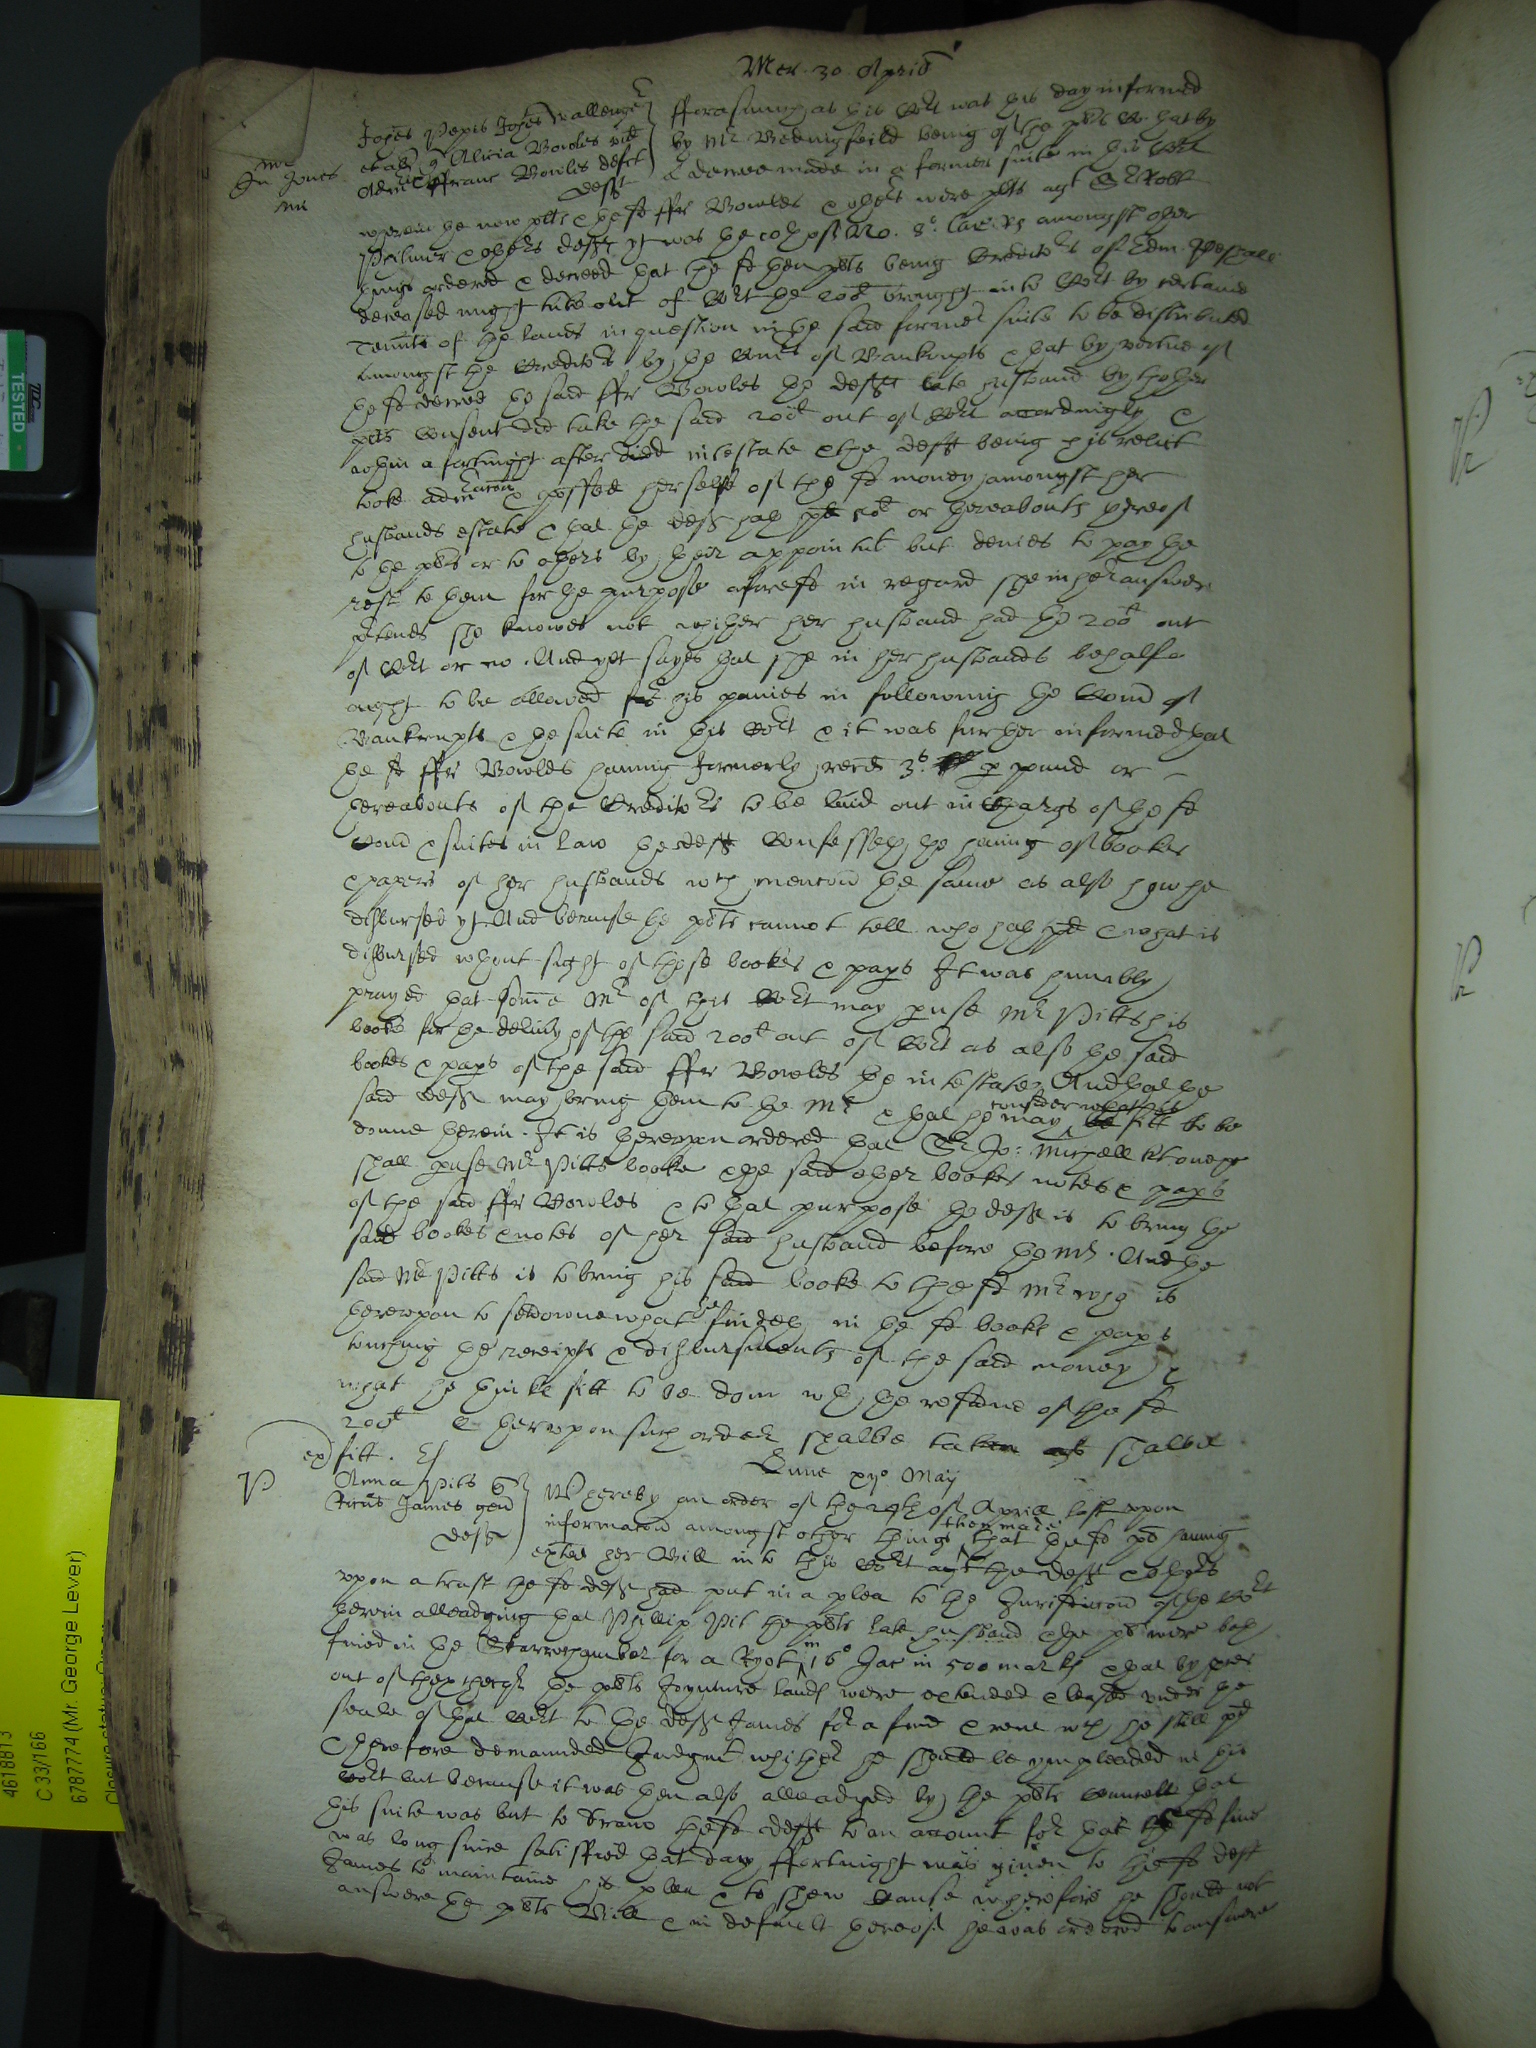 Mer. 30 Aprił
Johes Pepis Johes Wallenger
et al qr Alicia Bowles vid
Adm ffranc Bowles defct
Deft
Mr
Jones
Mr
fforasmuch as this Cort was this day informed
by Mr Bedingfeild being of the plts Co. that by
a decree made in a former suite in this Cort
wherein the now plts & the sd ffr Bowles & others were plts agt Sr Robt
& others defts yt was the amongst other
things ordered & decreed that the sd then plts being Creditors of Edm
deceased might take out of Cort the 200l brought into Cort by certaine
Tennts of the lands in question in the said former suite to be distributed
amongst the Creditors by the Comrs of Bankrupts & that by vertue of
the sd decree the said ffr Bowles the defts late husband by thother
plts Consent did take the said 200l out of Cort accordingly &
wthin a fortnight after died intestate & the deft being his relict
tooke admracon & possest herselfe of the sd money amongst her
husbands estate & that the deft hath pd 50l or thereabouts thereof
to the plts or to others by their appointmt but denies to pay the
rest to them for the purpose aforesd in regard she in her answer
ptends she knowes not whither her husband had the 200l out
of Cort or no. And yet sayes that she in her husbands behalfe
ought to be allowed for his paines in following the Comn of
Bankrupts & the suite in this Cort & it was further informed that
the sd ffr Bowles having formerly recd 3s p pound or
thereabouts of the Creditors to be laid out in Charges of the sd
Comn & suites in law the deft Confesseth the having of bookes
& papers of her husbands wch mencon the same as also how he
disbursed yt And because the plts cannot tell who hath pd & what is
disbursed wthout sight of those bookes & paps It was humbly
prayed that some Mr of this Cort may puse Mr Pitts his
booke for the delivy of the said 200l out of Cort as also the said
bookes & paps of the said ffr Bowles the intestate And that the
said deft may bring them to the Mr & that he may consider what is fitt to be
donne therein. It is thereupon ordered that Sr Jo: Michell kt one &c
shall puse Mr Pitts booke & the said other bookes notes & paps
of the said ffr Bowles & to that purpose the deft is to bring the
said bookes & notes of her said husband before the Mr. And the
said Mr Pitts is to bring his said booke to the sd Mr who is
thereupon to sett downe what he findeth in the sd booke & paps
touching the receipts & disbursments of the said money &
what he thinks fitt to be don wth the residue of the sd
200l & thereupon such order shalbe taken as shalbe
fitt.
P.
ex)
Lune May
Anna Pitt qr
Ricus James gen
deft
Whereby an order of the of Aprill last upon
informacon amongst other things then made that the sd pt having
exhited her Bill into this Cort agt the deft & others
upon a trust the sd deft had put in a plea to the Jurisdiccon of the Cort
therein alleadging that Phillip Pit the plts late husband & the plt were both
fined in the Starrchamber for a Ryot in 16o Jac in 500 marks & that by pces
out of thexchecqr the plts Joynture lands were extended & leased under the
seale of that Cort to the deft James for a fine & rent wch he still pd
& therefore demaunded Judgmt whither he should be ympleaded in this
Cort but because it was then also alleadged by the plts Councell that
this suite was but to draw the sd deft to an accompt for that the sd fine
was long since satisfied that day ffortnight was given to the sd deft
James to maintaine his plea & to shew cause wherefore he should not
answere the plts Bill & in default thereof he was ordered to answere
TESTED
4618813
C 33/166
6787774 (Mr. George Lever)